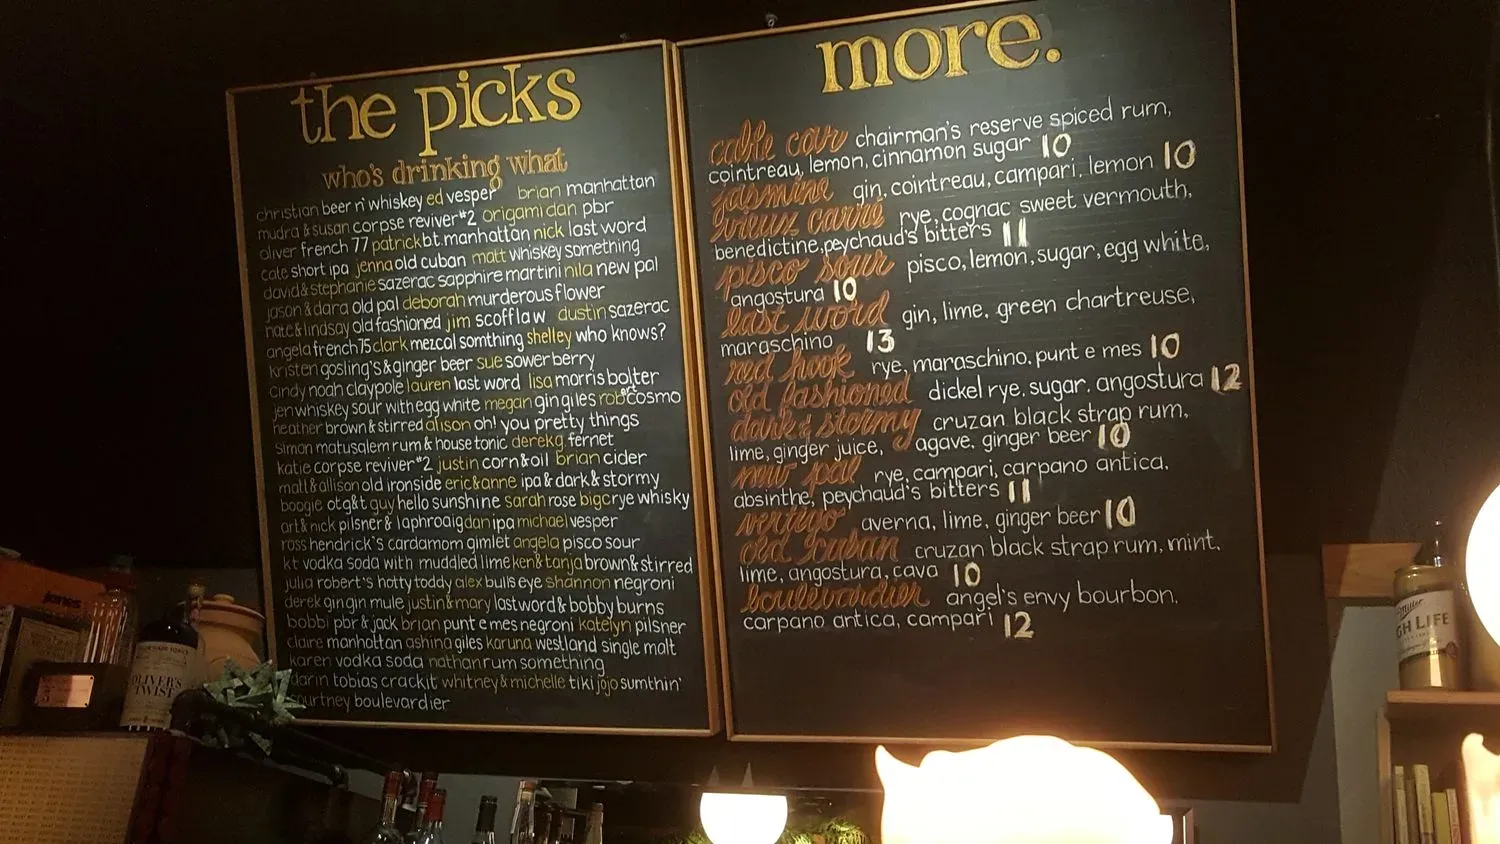 the picks
who's drinking what
christian beer n' whiskey ed vesper brian manhattan
mudra & susan corpse reviver #2 origami dan pbr
oliver french 77 patrick bt. manhattan nick last word
cate short ipa jenna old cuban matt whiskey something
david & stephanie sazerac sapphire martini nila new pal
jason & dara old pal deborah murderous flower
nate & lindsay old fashioned jim scofflaw dustin sazerac
angela french 75 clark mezcal somthing shelley who knows?
kristen gosling's & ginger beer sue sower berry
cindy noah claypole lauren last word lisa morris bolter
jen whiskey sour with egg white megan gin giles rob cosmo
heather brown & stirred alison oh! you pretty things
simon matusalem rum & house tonic derek g. fernet
katie corpse reviver #2 justin corn & oil brian cider
matt & allison old ironside eric & anne ipa & dark & stormy
boogie otg&t guy hello sunshine sarah rose big c rye whisky
art & nick pilsner & laphroaig dan ipa michael vesper
ross hendrick's cardamom gimlet angela pisco sour
kt vodka soda with muddled lime ken & tanja brown & stirred
julia robert's hotty toddy alex bulls eye shannon negroni
derek gin gin mule justin & mary last word & bobby burns
bobbi pbr & jack brian punt e mes negroni katelyn pilsner
claire manhattan ashina giles karuna westland single malt
karen vodka soda nathan rum something
darin tobias crackit whitney & michelle tiki jojo sumthin'
courtney boulevardier
more.
cable car chairman's reserve spiced rum,
cointreau, lemon, cinnamon sugar 10
jasmine gin, cointreau, campari, lemon 10
vieux carré rye, cognac sweet vermouth,
benedictine, peychaud's bitters 11
pisco sour pisco, lemon, sugar, egg white,
angostura 10
last word gin, lime, green chartreuse,
maraschino 13
red hook rye, maraschino, punt e mes 10
old fashioned dickel rye, sugar, angostura 12
dark & stormy cruzan black strap rum,
lime, ginger juice, agave, ginger beer 10
new pal rye, campari, carpano antica,
absinthe, peychaud's bitters 11
vertigo averna, lime, ginger beer 10
old cuban cruzan black strap rum, mint,
lime, angostura, cava 10
boulevardier angel's envy bourbon,
carpano antica, campari 12
jones
OLIVER'S
TWIST
Miller
HIGH LIFE